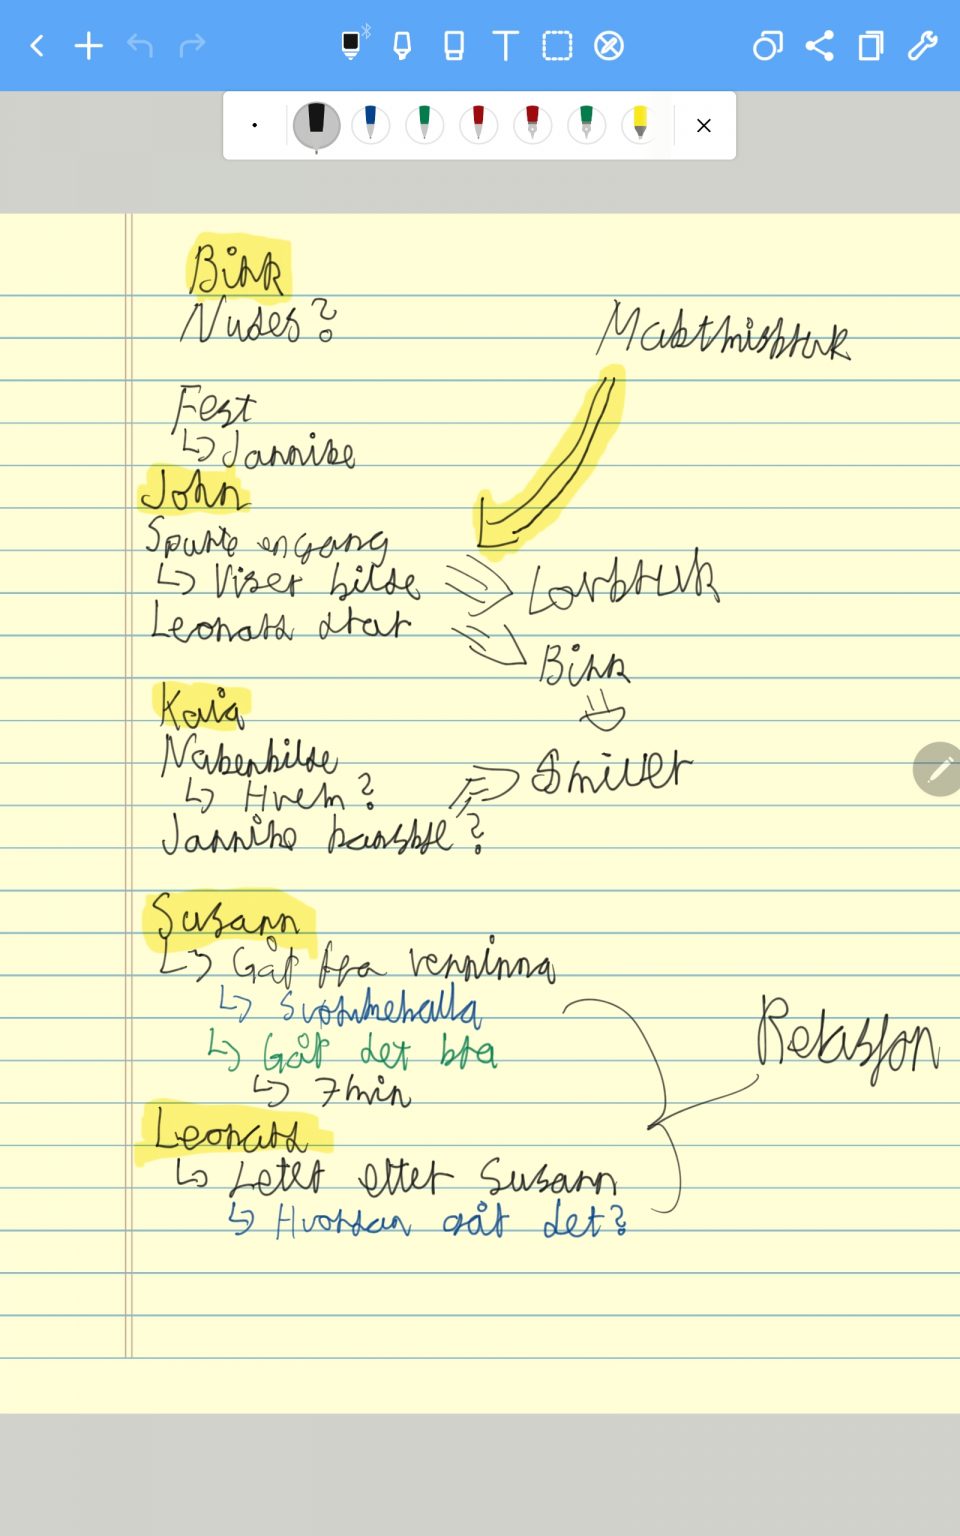 Birk
Nudes?
Maktmisbruk
Fest
↳ Jannike
John
Spurte engang
↳ Viser bilde
Lovbruk
Leonard drar
Birk
Kaia
Nakenbilde
↳ Hvem?
Smiler
Jannike kanskje?
Susann
↳ Går fra venninna
↳ Svømmehalla
↳ Går det bra
↳ 7 min
Relasjon
Leonard
↳ Leter etter Susann
↳ Hvordan går det?